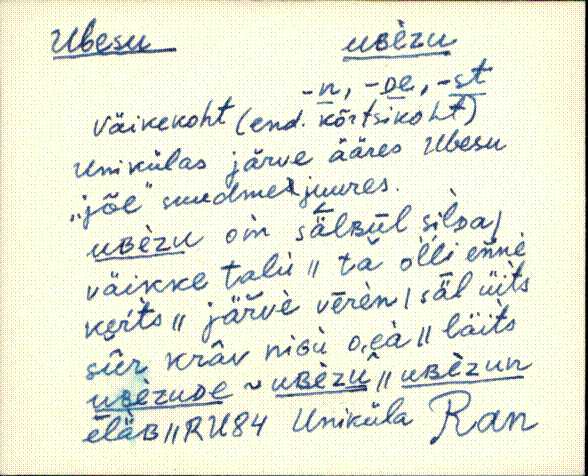 Ubesu uʙèzu
-n, -ᴅe, -st
Väikekoht (end. kõrtsikoht)
Unikülas järve ääres Ubesu
„jõe“ suudme juures.
uʙèzu om sälʙūl silᴅa/
väikke talù // tä õ̀lli ennè
kǫrits // järvè vērèn / säl üits
sūr krāv niɢù o̭jà // läits
uʙèzuᴅe ~ uʙèzū̬ // uʙèzun
elä̀ʙ // RU84 Uniküla Ran